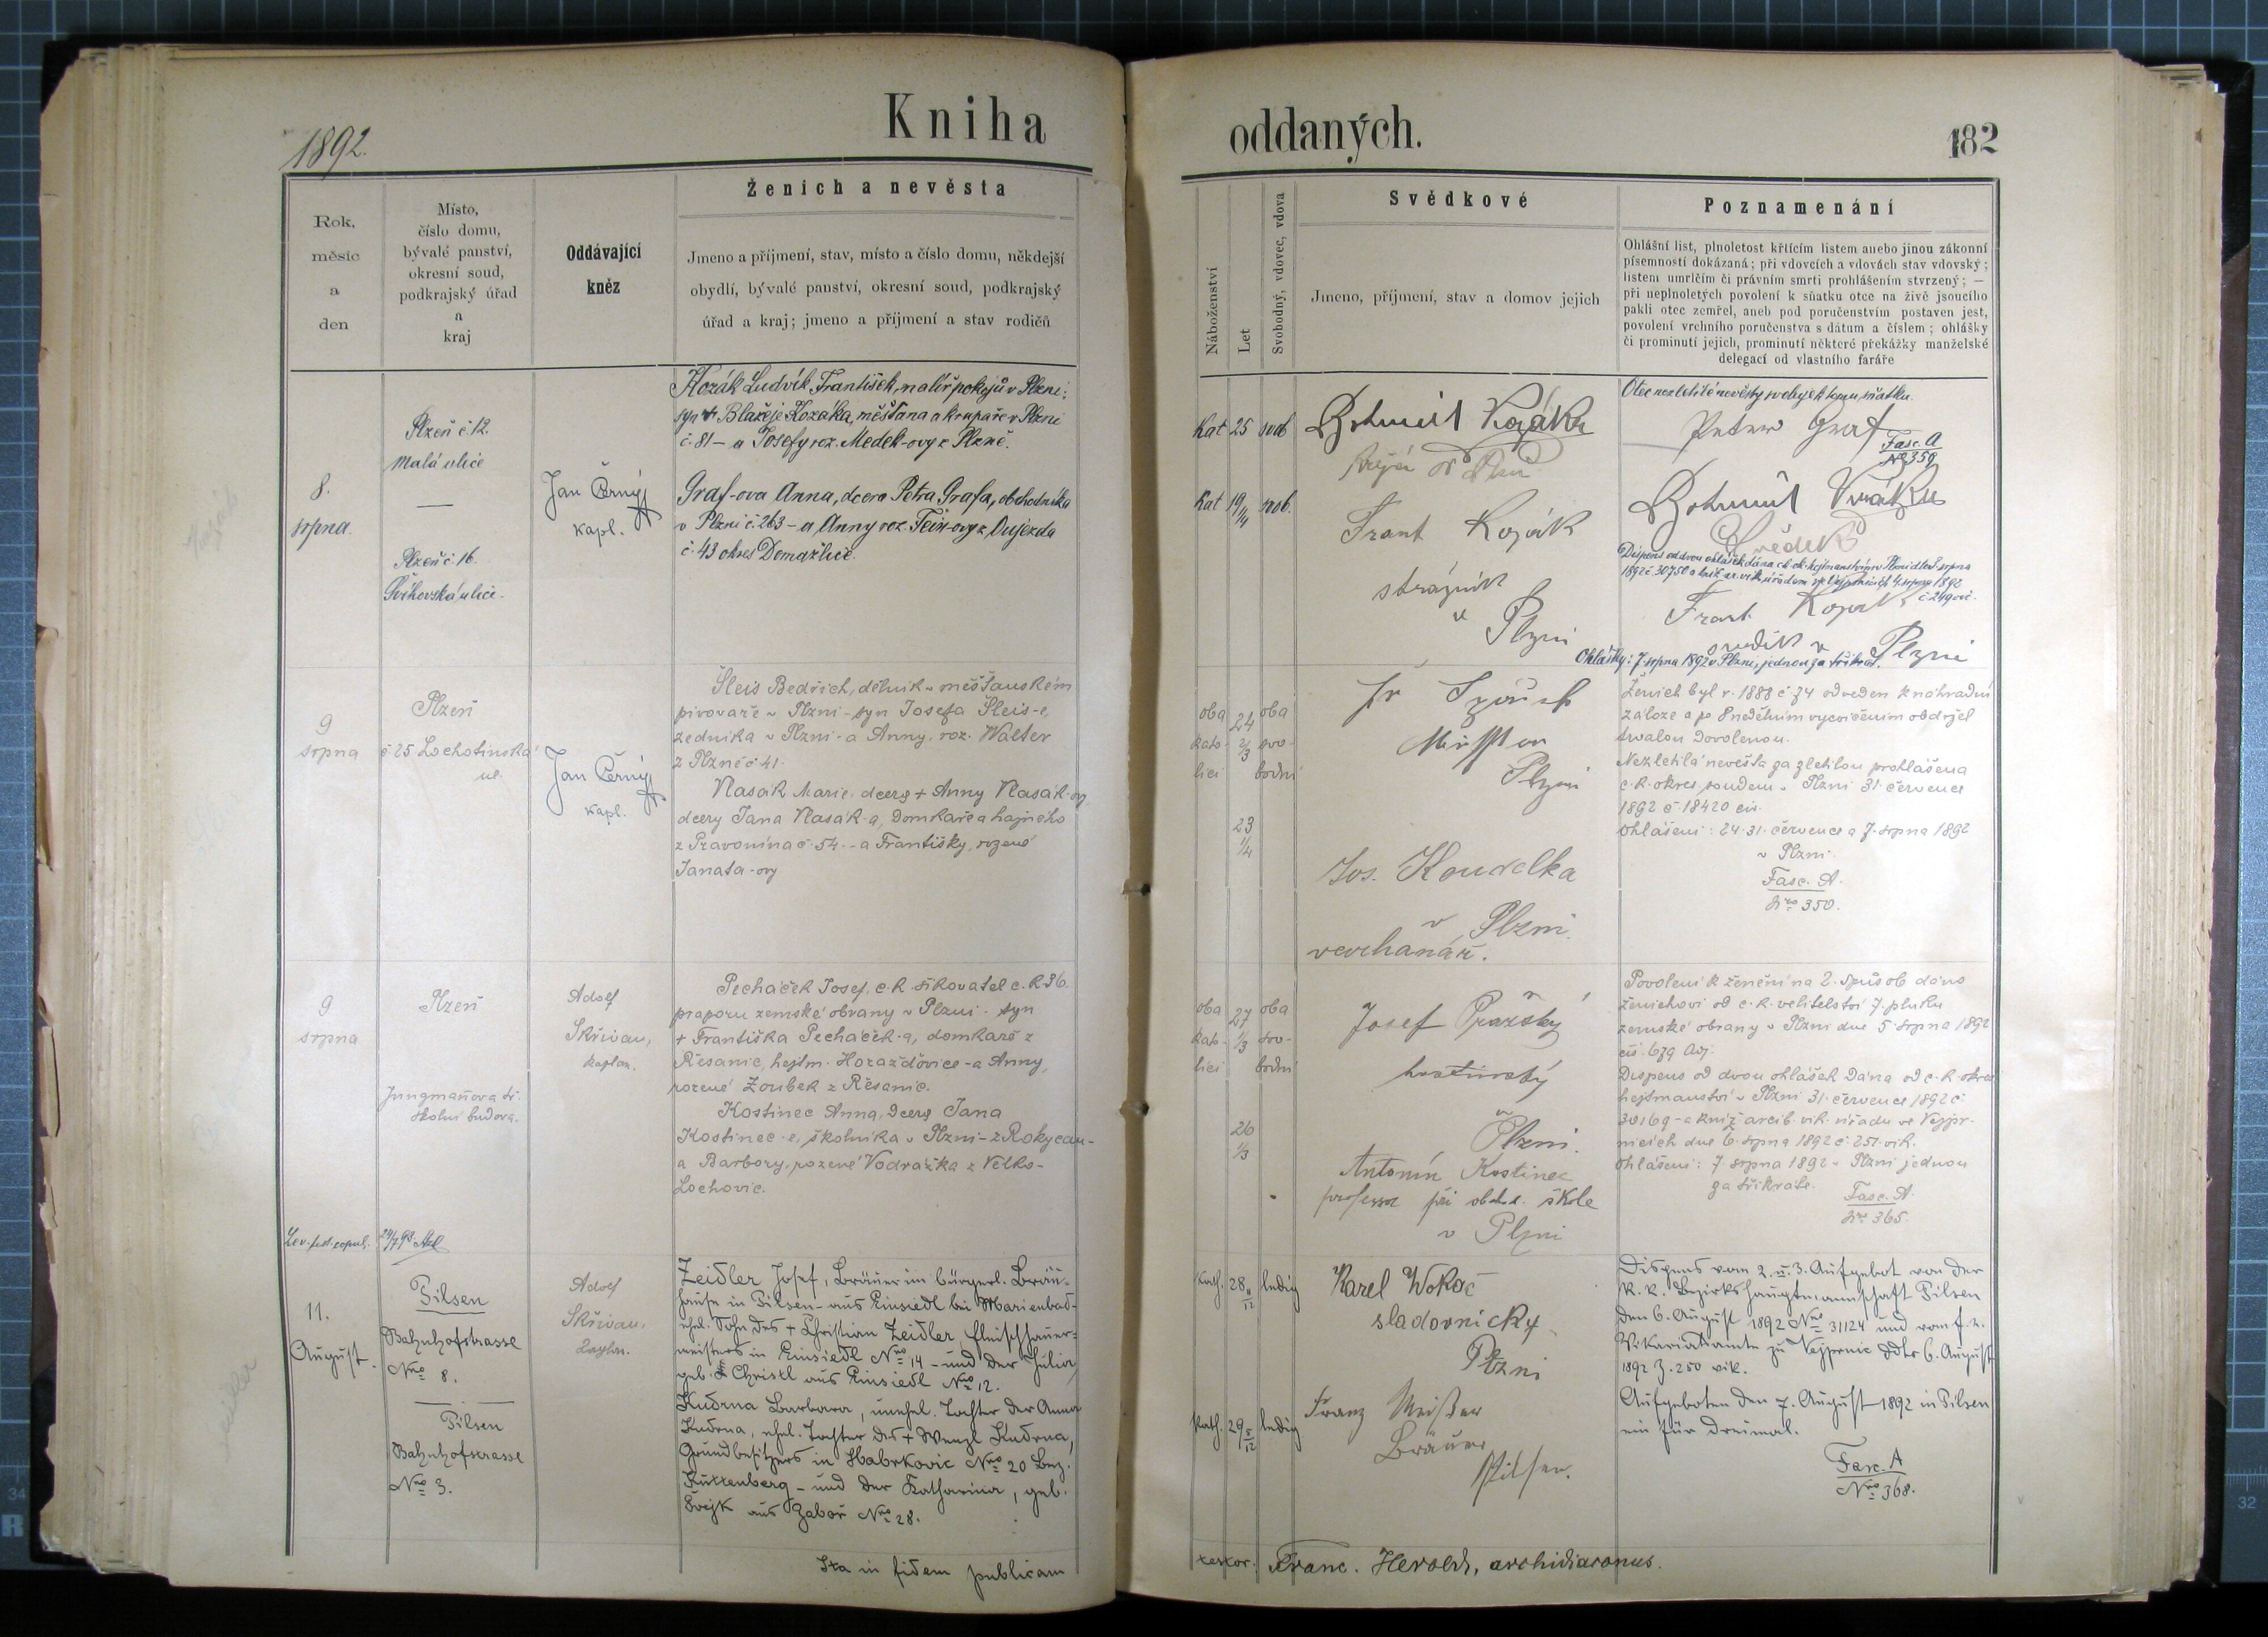 Kniha
oddaných.
1892.
182
Rok,
měsíc
a
den
Místo,
číslo domu,
bývalé panství,
okresní soud,
podkrajský úřad
a
kraj
Oddávající
kněz
Ženich a nevěsta
Jmeno a příjmení, stav, místo a číslo domu, někdejší
obydlí, bývalé panství, okresní soud, podkrajský
úřad a kraj; jmeno a příjmení a stav rodičů
Náboženství
Let
Svobodný, vdovec, vdova
Svědkové
Jmeno, příjmení, stav a domov jejich
Poznamenání
Ohlášní list, plnoletost křticím listem anebo jinou zákonní
písemností dokázaná; při vdovcích a vdovách stav vdovský;
listem umrlčím či právním smrti prohlášením stvrzený; —
při neplnoletých povolení k sňatku otce na živě jsoucího
pakli otec zemřel, aneb pod poručenstvím postaven jest,
povolení vrchního poručenstva s dátum a číslem; ohlášky
či prominutí jejich, prominutí některé překážky manželské
delegací od vlastního faráře
8.
srpna.
Plzeň č. 12.
Malá ulice
—
Plzeň č. 16.
ulice.
Jan Černý
kapl.
Kozák Ludvík František, malíř pokojů v Plzni;
syn + Blažeje Kozáka, měšťana a krupaře v Plzni
č. 81 – a Josefy roz. Medek-ovy z Plzně.
Graf-ova Anna, dcera Petra Grafa, obchodníka
v Plzni č. 263 – a Anny roz. z Oujezda
č. 43 okres Domažlice.
kat 25 svob
kat 19/4 svob.
Bohumil Kozák
Frant Kozák
strážník
v Plzni
Otec nezletilé nevěsty svoluje k tomu sňatku.
Peter Graf
Fasc. A
No 359
Bohumil
Svědek
Dispens od dvou ohlášek dána
1892 č. 30750 4. srpna 1892
č. 249
Frant Kozák
svědek v Plzni
Ohlášky: 7. srpna 1892 v Plzni, jednou za třikrát.
9
srpna
Plzeň
č 25 Lochotínská
ul.
Jan Černý
kapl.
Šleis Bedřich, dělník v měšťanském
pivovaře v Plzni – syn Josefa Šleis-e,
zedníka v Plzni – a Anny, roz. Walter
z Plzně č 41.
Vlasák Marie, dcera + Anny Vlasák-ovy
dcery Jana Vlasák-a, domkáře a hajného
z Pravonína č. 54 – a Františky, rozené
Janata-ovy
oba
kato-
lici
24
2/3
oba
svo-
bodni
23
1/4
v Plzni
Jos. Koudelka
v Plzni.
Ženich byl r. 1888 č 74 odveden k náhradní
záloze a po 8 nedělním vycvičením obdržel
trvalou dovolenou.
Nezletilá nevěsta za zletilou prohlášena
c. k. okres. soudem v Plzni 31. července
1892 č. 18420 civ.
Ohlášeni: 24. 31. července a 7. srpna 1892
v Plzni.
Fasc. A.
Nro 350.
9
srpna
Plzeň
Jungmanova tř.
školní budova.
Adolf
Skřivan,
kaplan.
Pecháček Josef, c. k. šikovatel c. k. 36.
praporu zemské obrany v Plzni – syn
+ Františka Pecháček-a, domkáře z
Řesanic, hejtm. Horažďovice – a Anny,
rozené Zoubek z Řesanic.
Kostinec Anna, dcera Jana
Kostinec-e, školníka v Plzni – z Rokycan –
a Barbory, rozené Vodrážka z Velko-
Lochovic.
oba
kato-
lici
27
1/3
oba
svo-
bodni
26
1/3
Josef Pražský
hostinský
v Plzni.
Antonín Kostinec
professor při obch. škole
v Plzni
Povolení k ženění na 2. způsob dáno
ženichovi od c. k. velitelství 7. pluku
zemské obrany v Plzni dne 5 srpna 1892
čís. 679 Adj.
Dispens od dvou ohlášek dána od c. k. okres
hejtmanství v Plzni 31. července 1892 č
30169 – a kníž. arcib. vik. úřadu ve Vejpr-
nicích dne 6. srpna 1892 č. 251. vik.
Ohlášeni: 7. srpna 1892 v Plzni jednou
za třikráte.
Fasc. A.
Nro 365.
11.
August.
Pilsen
Bahnhofstrasse
Nro 8.
Pilsen
Bahnhofstrasse
Nro 3.
Adolf
Skřivan,
Caplan.
Zeidler Josef, Bräuer im bürgerl. Bräu-
hause in Pilsen – aus Einsiedl bei Marienbad –
ehel. Sohn des + Christian Zeidler, Fleischhauer-
meisters in Einsiedl Nro 14 – und der Julia,
geb. Christl aus Einsiedl Nro 12.
Kudrna Barbara, unehel. Tochter der Anna
Kudrna, ehel. Tochter des + Wenzl Kudrna,
Grundbesitzers in Habrkovic Nro 20 Bez.
Kuttenberg – und der Katharina, geb.
Švejk aus Zaboř Nro 28.
Kath. 28 11/12 ledig
Kath. 29 5/12 ledig
Karel Wokáč
sladovnický
Plzni
Franz Meißner
Bräuer
Pilsen.
Dispens vom 2. u. 3. Aufgebot von der
k. k. Bezirkshauptmannschaft Pilsen
den 6. August 1892 Nro 31124 und vom f. e.
Vikariatamte zu Vejprnic ddto 6. August
1892 Z. 250 vik.
Aufgeboten den 7. August 1892 in Pilsen
ein für dreimal.
Fasc. A
Nro 368.
Ita in fidem publicam
testor. Franc. Herold, archidiaconus.